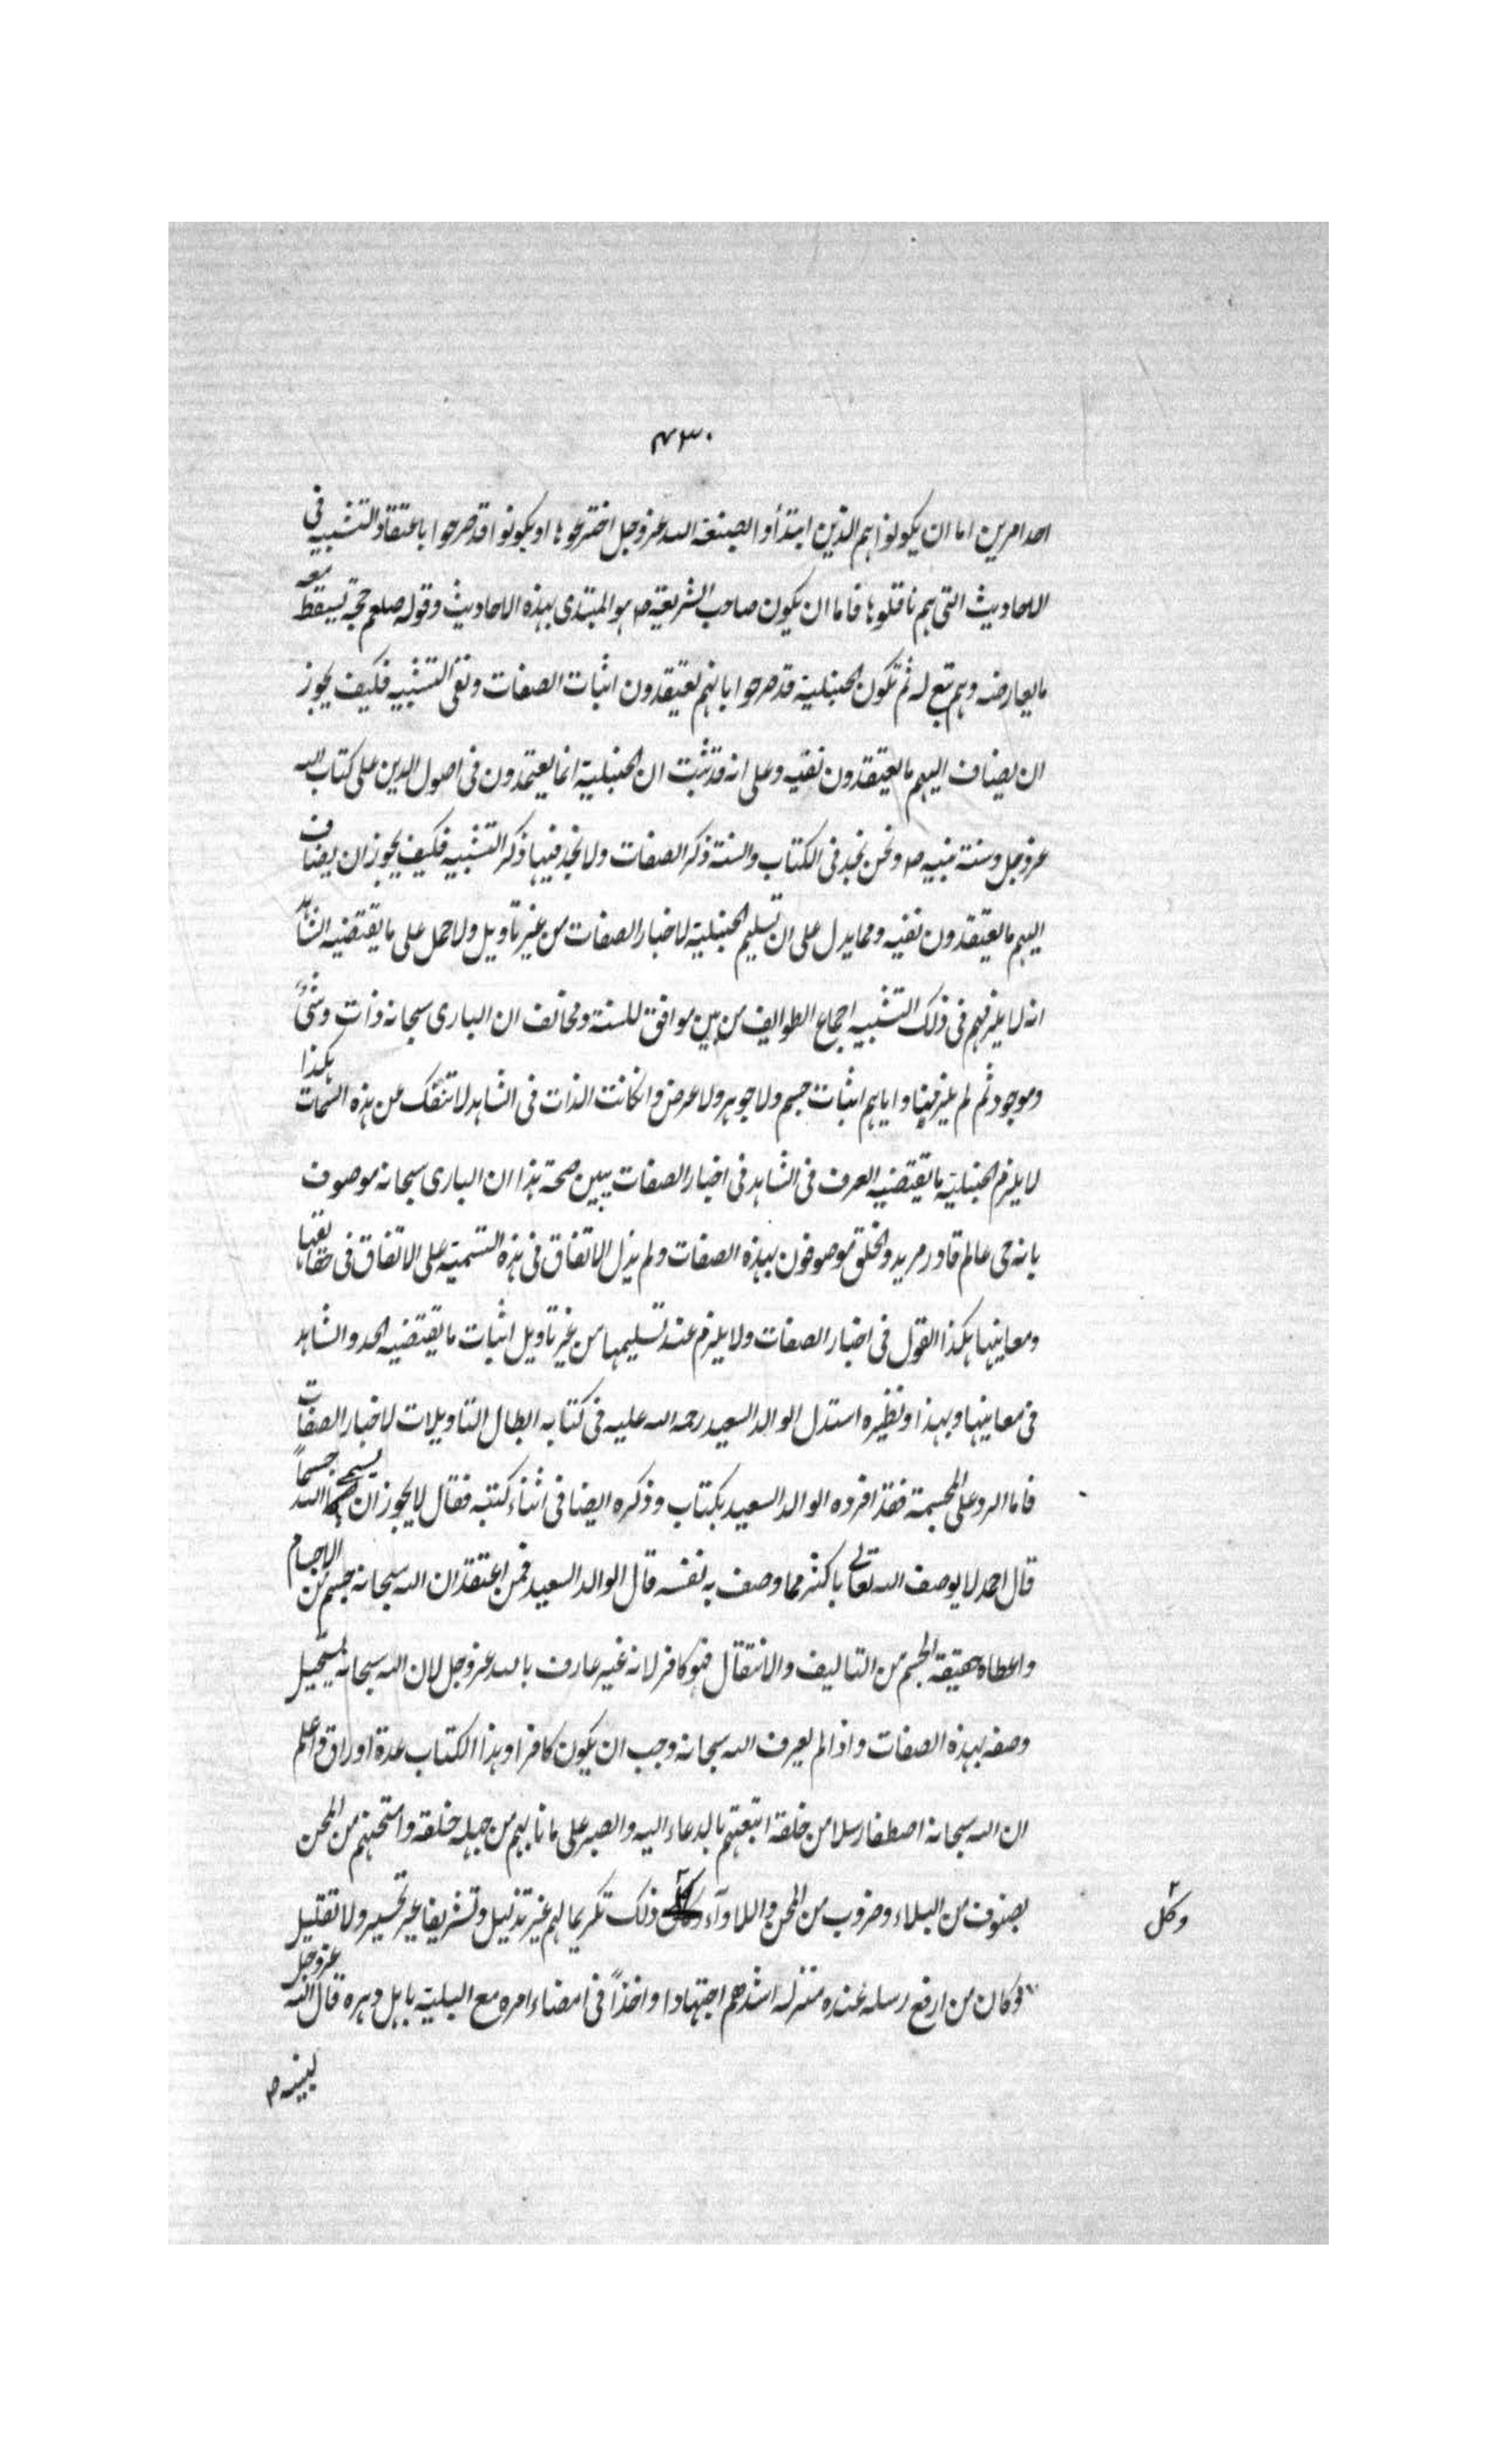 ٤٣٠
احد امرين اما ان يكونوا هم الذين ابتدأوا الصفة لله عز وجل اخترعوها او يكونوا قد صرحوا باعتقاد التشبيه في
الاحاديث التي هم ناقلوها فاما ان يكون صاحب الشريعة ص هو المبتدى بهذه الاحاديث وقوله صلعم حجة يسقط معه
ما يعارضه وهم تبع له ثم تكون الحنبلية قد صرحوا بانهم يعتقدون اثبات الصفات ونفي التشبيه فكيف يجوز
ان يضاف اليهم ما يعتقدون نفيه وعلى انه قد ثبت ان الحنبلية انما يعتمدون في اصول الدين على كتاب الله
عز وجل وسنة نبيه ص ونحن نجد في الكتاب والسنة ذكر الصفات ولا نجد فيها ذكر التشبيه فكيف يجوز ان يضاف
اليهم ما يعتقدون نفيه ومما يدل على ان تسليم الحنبلية لاخبار الصفات من غير تاويل ولا حمل على ما يقتضيه الشاهد
انه لا يلزمهم في ذلك التشبيه اجماع الطوايف من بين موافق للسنة ومخالف ان البارى سبحانه ذات وشئ
وموجود ثم لم يلزمنا واياهم اثبات جسم ولا جوهر ولا عرض وان كانت الذات في الشاهد لا تنفك عن هذه السمات هكذا
لا يلزم الحنبلية ما يقتضيه العرف في الشاهد في اخبار الصفات يبين صحة هذا ان البارى سبحانه موصوف
بانه حى عالم قادر مريد والخلق موصوفون بهذه الصفات ولم يدل الاتفاق في هذه التسمية على الاتفاق في حقايقها
ومعانيها هكذا القول في اخبار الصفات ولا يلزم عند تسليمها من غير تاويل اثبات ما يقتضيه الحد والشاهد
في معانيها وبهذا ونظيره استدل الوالد السعيد رحمه الله عليه في كتابه ابطال التاويلات لاخبار الصفات
فاما الرد على المجسمة فقد افرده الوالد السعيد بكتاب وذكره ايضا في اثناء كتبه فقال لا يجوز ان يسمى الله جسماً
قال احمد لا يوصف الله تعالى باكثر مما وصف به نفسه قال الوالد السعيد فمن اعتقد ان الله سبحانه جسم من الاجسام
واعطاه حقيقة الجسم من التاليف والانتقال فهو كافر لانه غير عارف بالله عز وجل لان الله سبحانه يستحيل
وصفه بهذه الصفات واذا لم يعرف الله سبحانه وجب ان يكون كافرا وهذا الكتاب عدة اوراق واعلم
ان الله سبحانه اصطفا رسلا من خلقه ابتعثهم بالدعاء اليه والصبر على ما نابهم من جهلة خلقه وامتحنهم من المحن
بصنوف من البلاء وضروب من المحن واللاوآء وكل ذلك تكريما لهم غير تذليل وتشريفا غير تخسير ولا تقليل
وكان من ارفع رسله عنده منزلة اشدهم اجتهادا واخذاً في امضاء امره مع البلية باهل دهره قال الله عز وجل
وكل
لنبيه ص